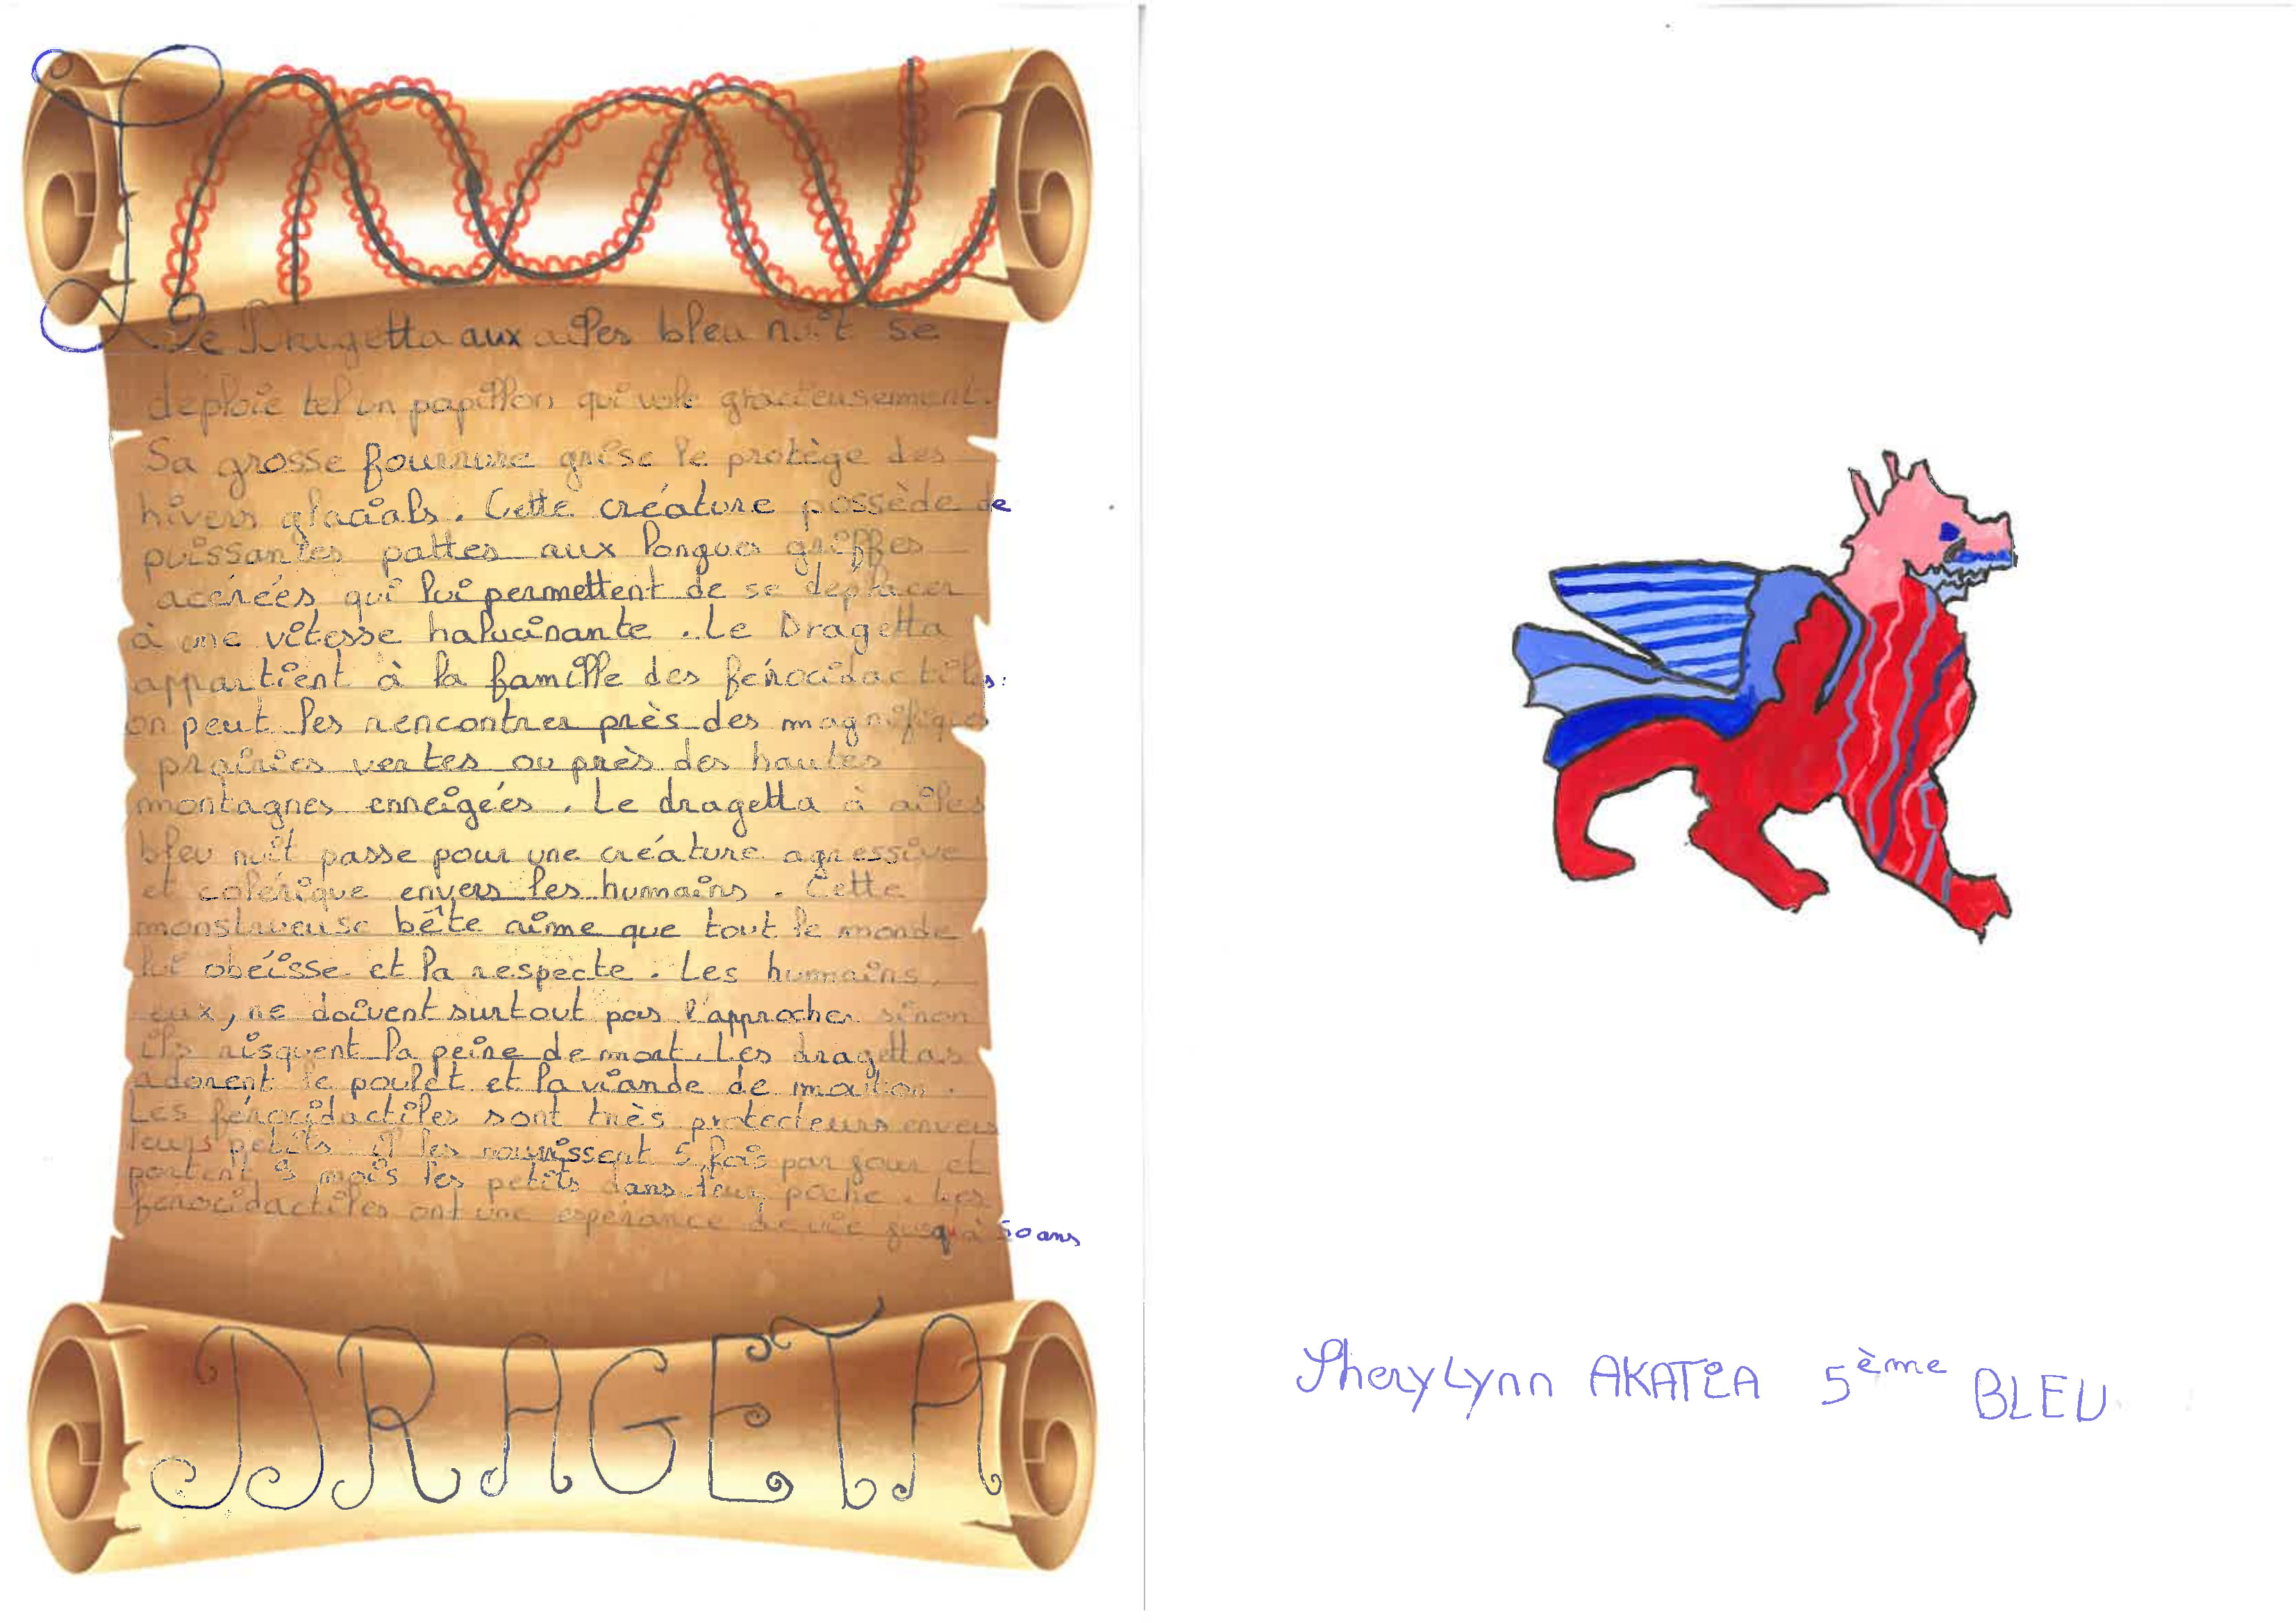 Le Dragetta aux ailes bleu nuit se
déploie tel un papillon qui vole gracieusement.
Sa grosse fourrure grise le protège des
hivers glacials. Cette créature possède de
puissantes pattes aux longues griffes
acérées qui lui permettent de se déplacer
à une vitesse halucinante. Le Dragetta
appartient à la famille des férocidactiles:
on peut les rencontrer près des magnifiques
prairies vertes ou près des hautes
montagnes enneigées. Le dragetta à ailes
bleu nuit passe pour une créature agressive
et colérique envers les humains. Cette
monstrueuse bête aime que tout le monde
lui obéisse et la respecte. Les humains,
eux, ne doivent surtout pas l'approcher sinon
ils risquent la peine de mort. Les dragettas
adorent le poulet et la viande de mouton.
Les férocidactiles sont très protecteurs envers
leurs petits il les nourissent 5 fois par jour et
portent mois les petits dans leur poche. Les
ferocidactiles ont une espérance de vie jusqu'à 50 ans
DRAGETA
Sherylynn AKATIA 5ème BLEU